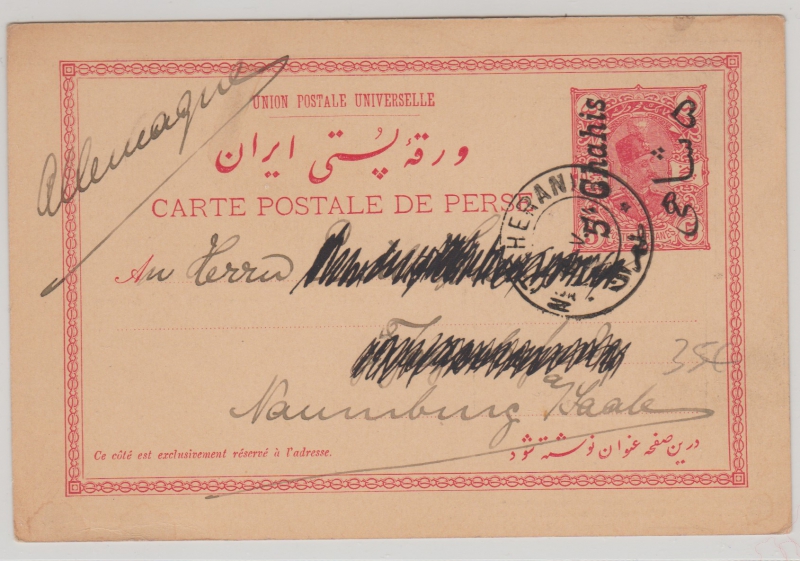 Allemagne
UNION POSTALE UNIVERSELLE
ورقهٔ پستی ایران
CARTE POSTALE DE PERSE
5 Chahis
۵ شاهی
TEHERAN
طهران
An Herrn
Naumburg a/Saale
35€
Ce côté est exclusivement réservé à l'adresse.
درین صفحه عنوان نوشته شود